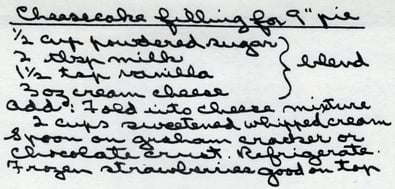 Cheesecake filling for 9" pie
1/2 cup powdered sugar
2 tbsp milk
1 1/2 tsp vanilla
3 oz cream cheese
} blend
add: Fold into cheese mixture
2 cups sweetened whipped cream
Spoon on graham cracker or
Chocolate crust. Refrigerate.
Frozen strawberries good on top